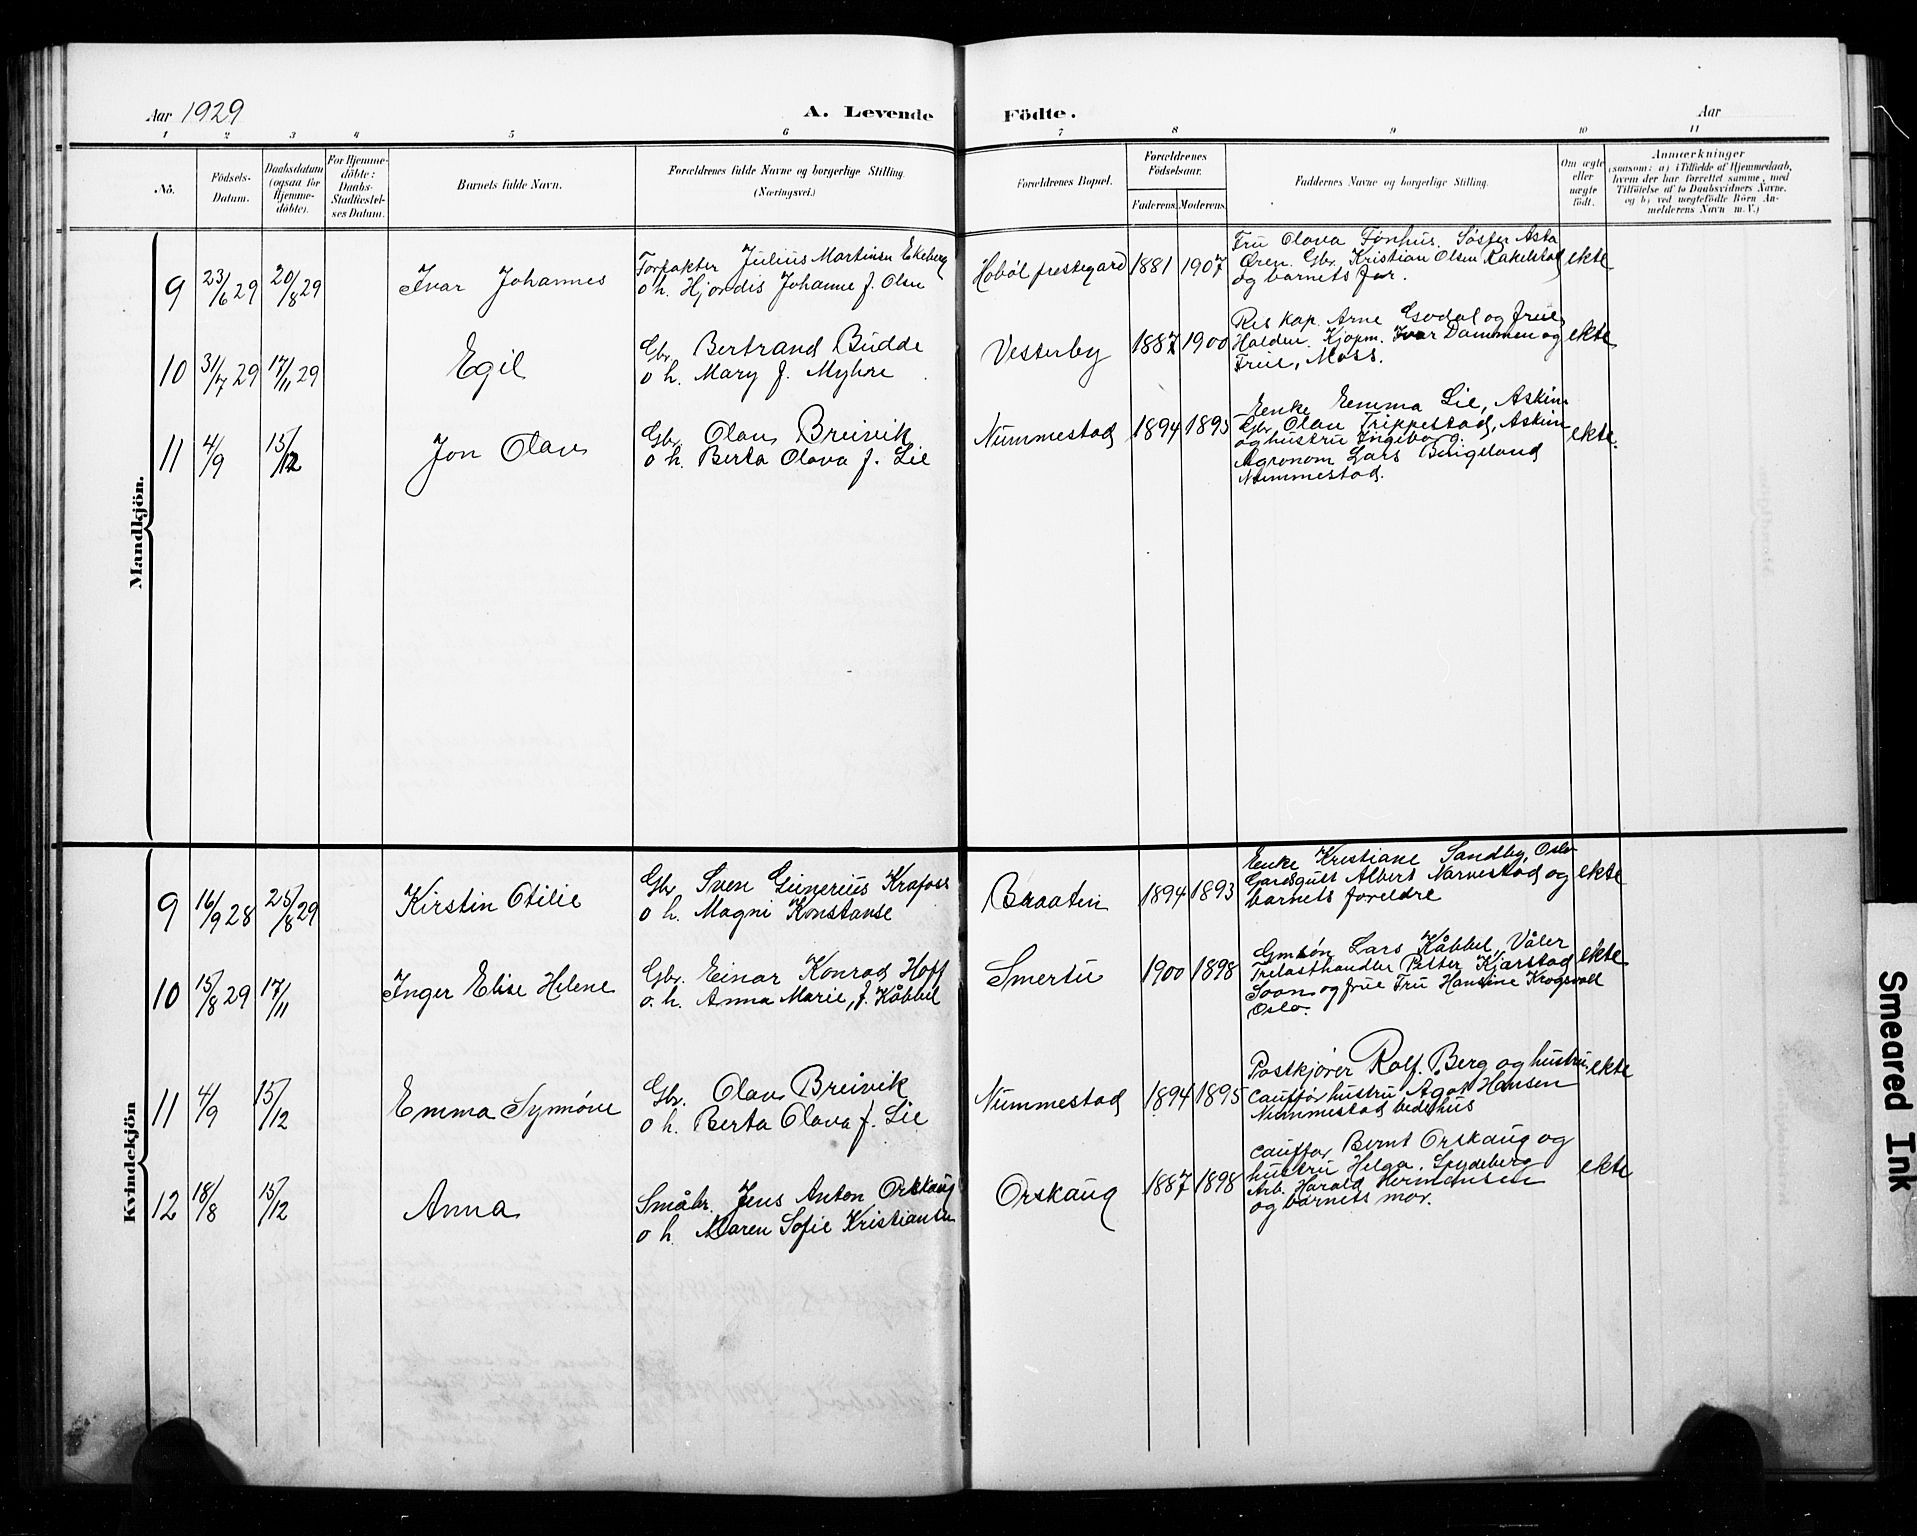 Aar 1929
A. Levende Födte.
Aar
1 2 3 4 5 6 7 8 9 10 11
Nö.
Födsels-
Datum.
Daabsdatum
(ogsaa for
Hjemme-
döbte).
For Hjemme-
döbte:
Daabs-
Stadfæstel-
ses Datum.
Barnets fulde Navn.
Forældrenes fulde Navne og borgerlige Stilling.
(Næringsvei.)
Forældrenes Bopæl.
Forældrenes
Födselsaar.
Faderens. Moderens.
Faddernes Navne og borgerlige Stilling.
Om ægte
eller
uægte
födt.
Anmærkninger
(saasom: a) i Tilfælde af Hjemmedaab,
hvem der har forrettet samme, med
Tilföielse af to Daabsvidners Navne.
og b) ved uægtefödte Börn An-
melderens Navn m. V.)
Mandkjön.
9 23/6 29 20/8 29 Ivar Johannes
Forpakter Julius Martinsen Ekeberg
o h. Hjordis Johanne f. Olsen
Hobøl prestegard 1881 1907
Fru Olava Fønhus. Søster Asta
Øren. Gbr. Kristian Olsen Rakelstad
og barnets far.
ekte
10 31/7 29 17/11 29 Egil
Gbr. Bertrand Budde
o h. Mary f. Myhre
Vesterby 1887 1900
Res kap. Arne Gvodal og frue
Halden. Kjøpm. Ivar Dammen og
Frue, Moss.
ekte
11 4/9 15/12 Jon Olav
Gbr. Olav Breivik
o h. Berta Olava f. Lie
Nummestad 1894 1895
Enke Emma Lie, Askim
Gbr. Olav Trippestad, Askim
og hustru Ingeborg.
Agronom Lars Bingeland
Nummestad.
ekte.
Kvindekjön
9 16/9 28 25/8 29 Kirstin Otilie
Gbr. Sven Gunerius Krafoss
o h. Magni Konstanse
Braaten 1894 1893
Enke Kristiane Sandby, Oslo
Gardsgutt Albert Narvestad og
barnets foreldre
ekte
10 15/8 29 17/11 Inger Elise Helene
Gbr. Einar Konrad Hoff
o. h. Anna Marie, f. Kåbbel
Smertu 1900 1898
Gmsøn Lars Kåbbel, Våler
Trelasthandler Petter Kjærstad
Soon og frue Fru Hansine Krogsvoll
Oslo.
ekte
11 4/9 15/12 Emma Synnöve
Gbr. Olav Breivik
o h. Berta Olava f. Lie
Nummestad 1894 1895
Postkjører Rolf. Berg og hustru.
Cauffør hustru Agot Hansen
Nummestad bedehus
ekte
12 18/8 15/12 Anna
Småbr. Jens Anton Orskaug
o h. Maren Sofie Kristiansen
Orskaug 1887 1898
Cauffør Bernt Orskaug og
hustru Helga. Spydeberg
Arb. Harald Hermansen
og barnets mor.
ekte
Smeared Ink